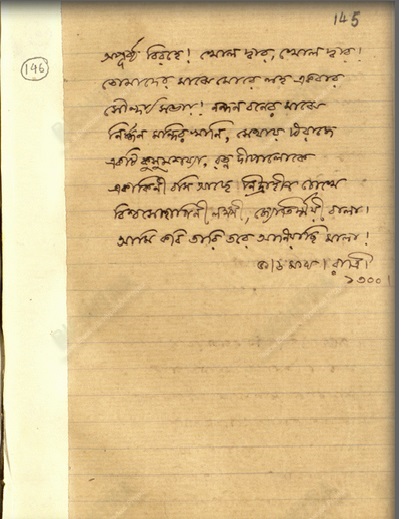 145
146
অপূর্ব্ব বিরহে! খোল দ্বার, খোল দ্বার!
তোমাদের মাঝে মোরে লহ একবার
সৌন্দর্য্য সভায়! নন্দন বনের মাঝে
নির্জ্জন মন্দির খানি, সেথায় বিরাজে
একটি কুসুমশয্যা, রত্ন দীপালোকে
একাকিনী বসি আছে নিদ্রাহীন চোখে
বিশ্বসোহাগিনী লক্ষ্মী, জ্যোতির্ম্ময়ী বালা।
আমি কবি তারি তরে আনিয়াছি মালা!
মাঘ। রাত্রি।
১৩০০।